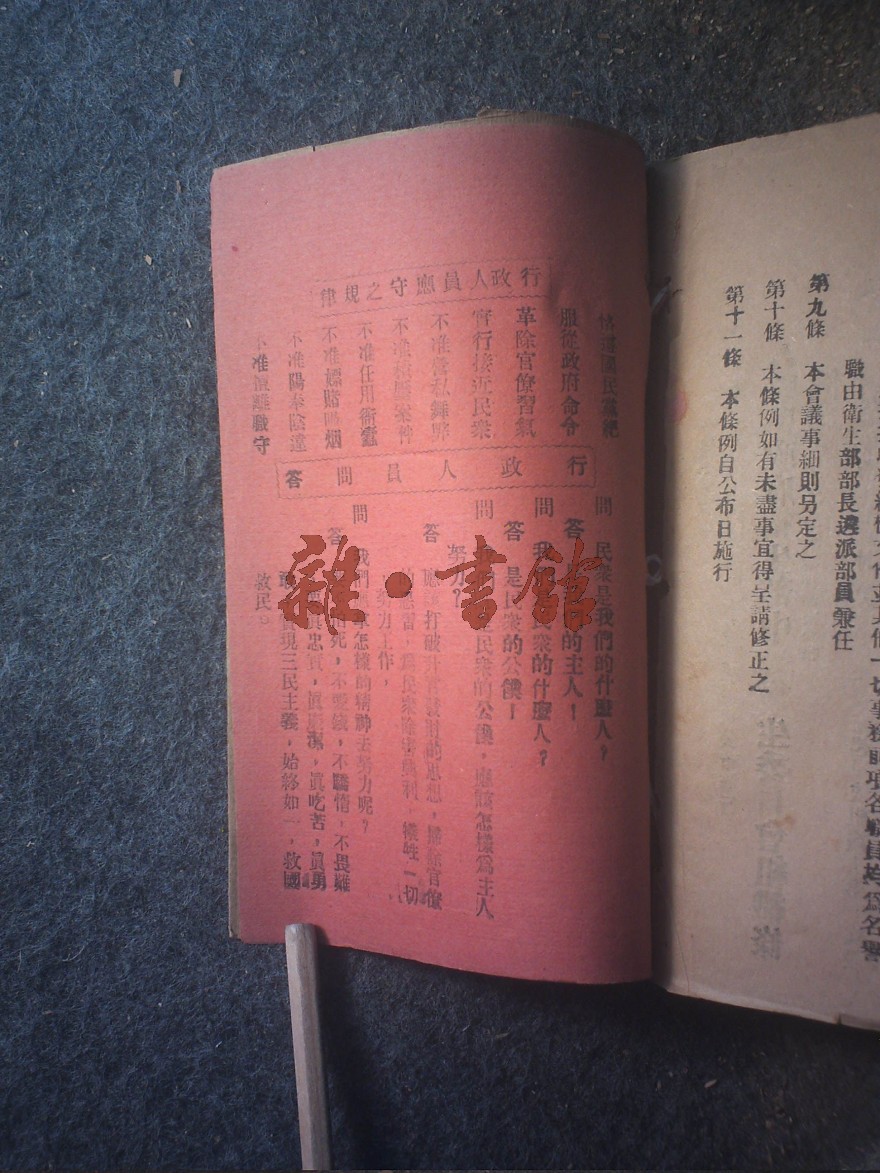 職由衛生部部長遴派部員兼任
第九條　本會議事細則另定之
第十條　本條例如有未盡事宜得呈請修正之
第十一條　本條例自公布日施行
行政人員應守之規律
服從政府命令
革除官僚習氣
實行接近民衆
不准營私舞弊
不准任用衙蠹
不准嫖賭烟
不准陽奉陰違
不准擅離職守
行政人員問答
問　民衆是我們的什麼人？
答　的主人！
問　我衆的什麼人？
答　是民衆的公僕！
問　民衆的公僕，應該怎樣爲主人
努力？
答　應打破升官發財的思想，掃除官僚
的惡習，爲民衆除害興利，犧牲一切
努力工作，
問　我們拿怎樣的精神去努力呢？
答　死，不要錢，不驕惰，不畏難
眞忠實，眞廉潔，眞吃苦，眞勇
實現三民主義，始終如一，救國
救民。
雜·書館